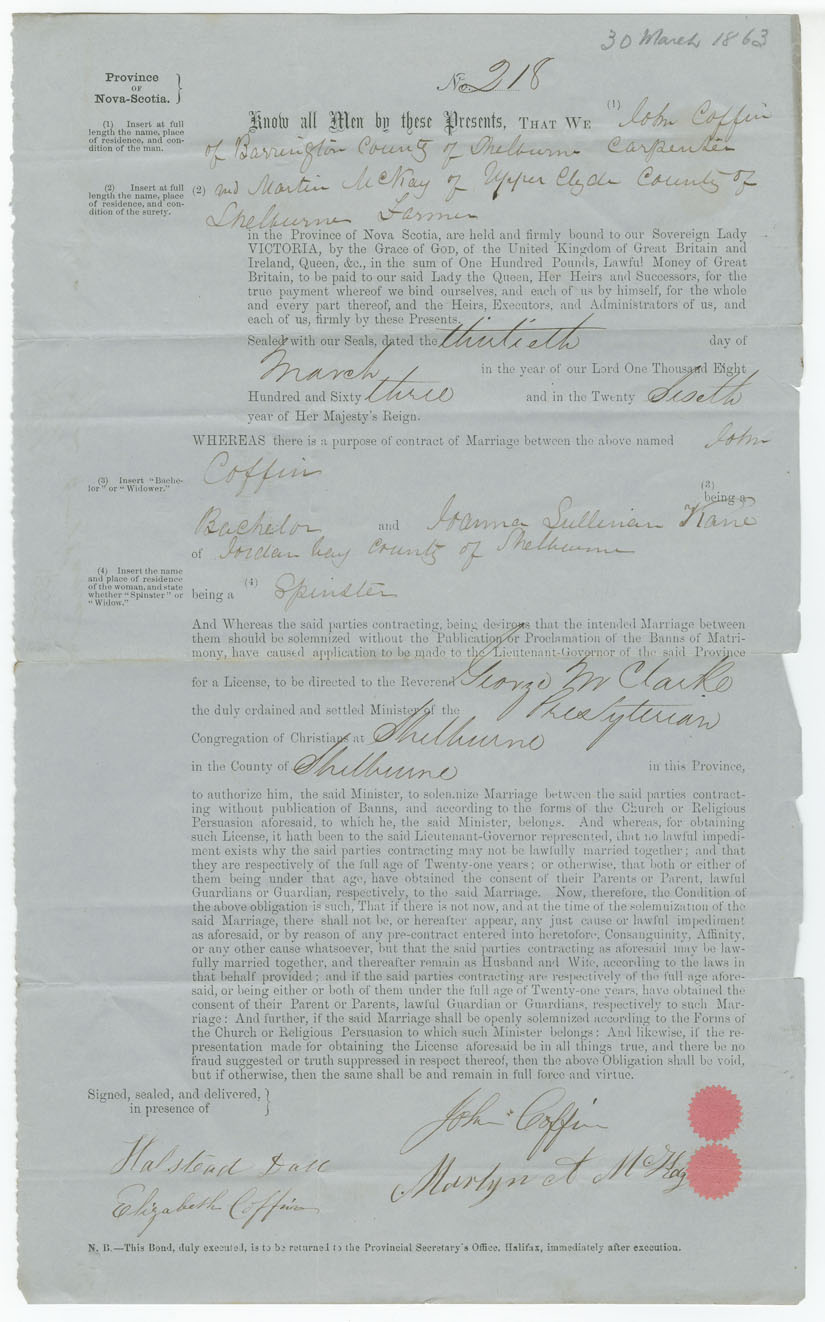 30 March 1863
Province
OF
Nova-Scotia.
No. 218
(1) Insert at full
length the name, place
of residence, and con-
dition of the man.
Know all Men by these Presents, THAT WE (1) John Coffin
of Barrington County of Shelburne Carpenter
(2) Insert at full
length the name, place
of residence, and con-
dition of the surety.
(2) and Martin McKay of Upper Clyde County of
Shelburne Farmer
in the Province of Nova Scotia, are held and firmly bound to our Sovereign Lady
VICTORIA, by the Grace of GOD, of the United Kingdom of Great Britain and
Ireland, Queen, &c., in the sum of One Hundred Pounds, Lawful Money of Great
Britain, to be paid to our said Lady the Queen, Her Heirs and Successors, for the
true payment whereof we bind ourselves, and each of us by himself, for the whole
and every part thereof, and the Heirs, Executors, and Administrators of us, and
each of us, firmly by these Presents.
Sealed with our Seals, dated the thirtieth day of
March in the year of our Lord One Thousand Eight
Hundred and Sixty three and in the Twenty Sixth
year of Her Majesty's Reign.
WHEREAS there is a purpose of contract of Marriage between the above named John
Coffin
(3) Insert "Bache-
lor" or "Widower."
(3)
being a
Bachelor and Joanna Sullivan Kane
of Jordan bay County of Shelburne
(4) Insert the name
and place of residence
of the woman, and state
whether "Spinster" or
"Widow."
being a (4) Spinster
And Whereas the said parties contracting, being desirous that the intended Marriage between
them should be solemnized without the Publication or Proclamation of the Banns of Matri-
mony, have caused application to be made to the Lieutenant-Governor of the said Province
for a License, to be directed to the Reverend George M Clarke
the duly ordained and settled Minister of the Presbyterian
Congregation of Christians at Shelburne
in the County of Shelburne in this Province,
to authorize him, the said Minister, to solemnize Marriage between the said parties contract-
ing without publication of Banns, and according to the forms of the Church or Religious
Persuasion aforesaid, to which he, the said Minister, belongs. And whereas, for obtaining
such License, it hath been to the said Lieutenant-Governor represented, that no lawful impedi-
ment exists why the said parties contracting may not be lawfully married together; and that
they are respectively of the full age of Twenty-one years; or otherwise, that both or either of
them being under that age, have obtained the consent of their Parents or Parent, lawful
Guardians or Guardian, respectively, to the said Marriage. Now, therefore, the Condition of
the above obligation is such, That if there is not now, and at the time of the solemnization of the
said Marriage, there shall not be, or hereafter appear, any just cause or lawful impediment
as aforesaid, or by reason of any pre-contract entered into heretofore, Consanguinity, Affinity,
or any other cause whatsoever, but that the said parties contracting as aforesaid may be law-
fully married together, and thereafter remain as Husband and Wife, according to the laws in
that behalf provided; and if the said parties contracting are respectively of the full age afore-
said, or being either or both of them under the full age of Twenty-one years, have obtained the
consent of their Parent or Parents, lawful Guardian or Guardians, respectively to such Mar-
riage: And further, if the said Marriage shall be openly solemnized according to the Forms of
the Church or Religious Persuasion to which such Minister belongs: And likewise, if the re-
presentation made for obtaining the License aforesaid be in all things true, and there be no
fraud suggested or truth suppressed in respect thereof, then the above Obligation shall be void,
but if otherwise, then the same shall be and remain in full force and virtue.
Signed, sealed, and delivered,
in presence of
John Coffin
Halstead
Martyn A McKay
Elizabeth Coffin
N. B.—This Bond, duly executed, is to be returned to the Provincial Secretary's Office, Halifax, immediately after execution.